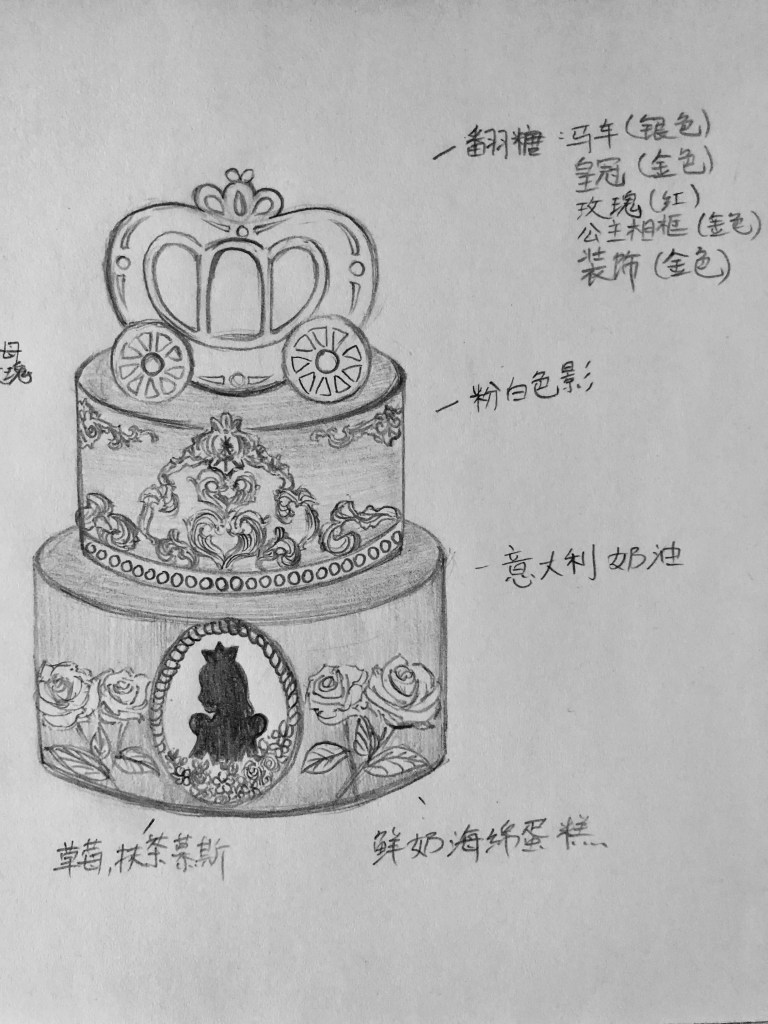 翻糖：马车(银色)
皇冠(金色)
玫瑰(红)
公主相框(金色)
装饰(金色)
母
瑰
粉白色影
意大利奶油
草莓,扶茶慕斯
鲜奶海绵蛋糕